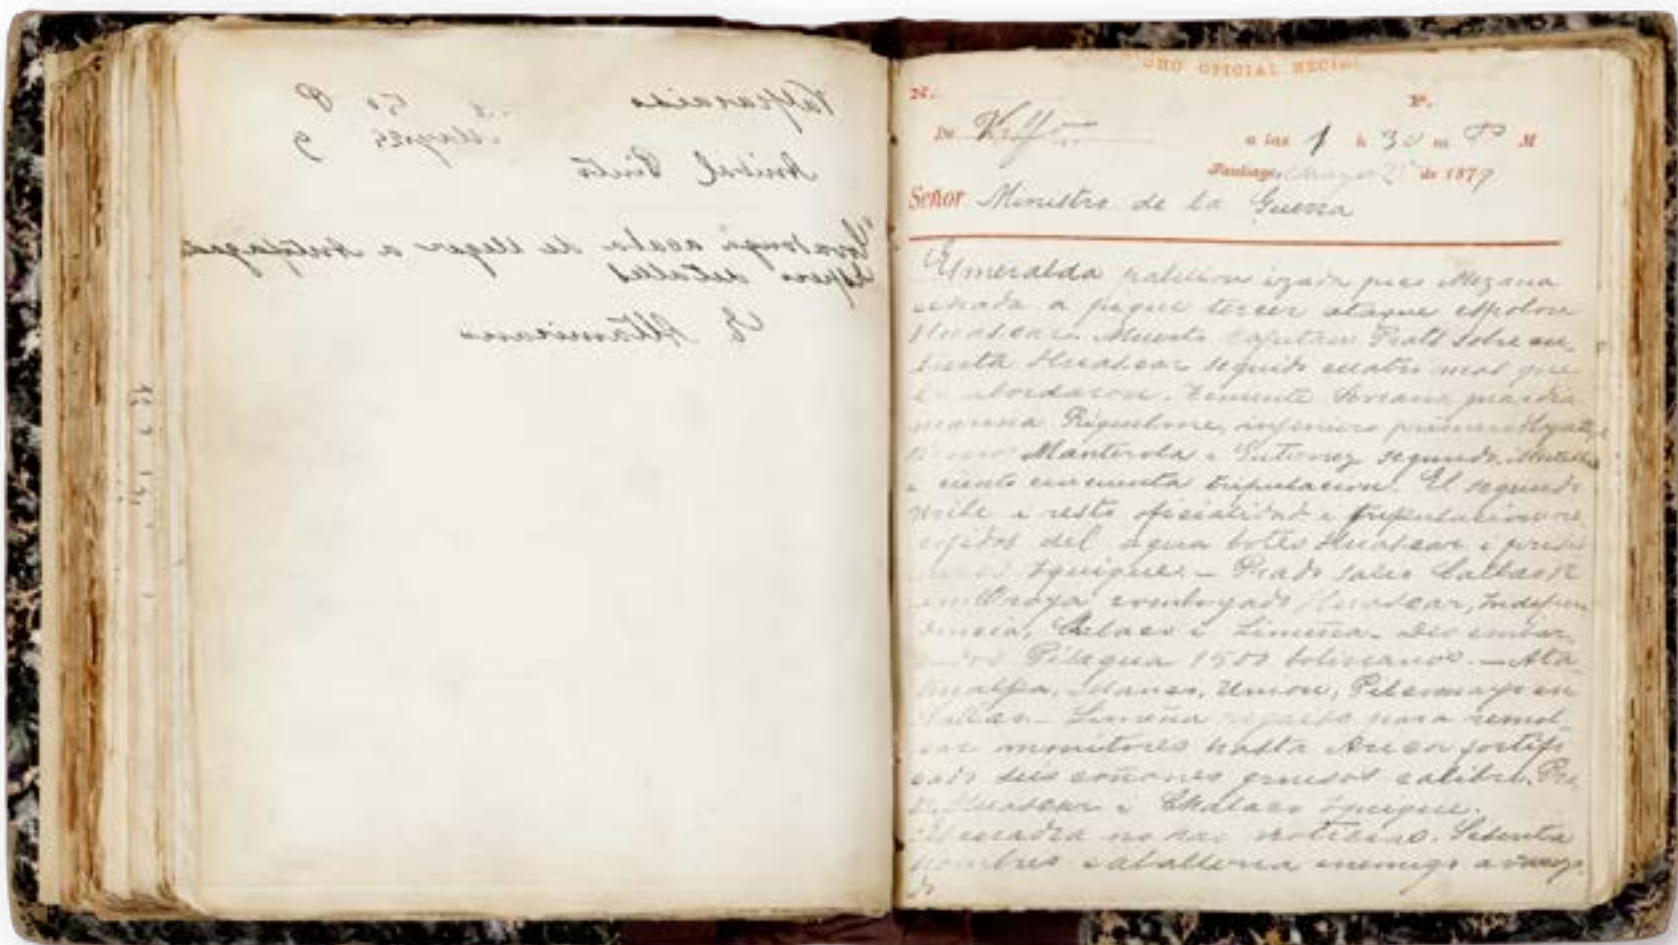 Valparaiso
50 P
Mayo 24 9
Anibal Pinto
"Covadonga acaba de llegar a Antofagasta
Espero detalles
E Altamirano
CHO OFICIAL RECIB
N. P.
De Valpo a las 1 h 30 m P M
Santiago, Mayo 2 de 1879
Señor Ministro de la Guerra
Esmeralda pabellon izado pico Mezana
echada a pique tercer ataque espolon
Huascar. Muerto capitan Prats sobre cu
bierta Huascar seguido cuatro mas que
lo abordaron. Teniente Serrano, guardia
marina Riquelme, injeniero primero Hyatt,
Manterola i Gutierrez segundo, Mutilla
i ciento cincuenta tripulacion. El segundo
Uribe i resto oficialidad i tripulacion re
cojidos del agua botes Huascar i prisio
neros Iquique. — Prado salio Callao
en Oroya convoyado Huascar, Indepen
dencia, Chalaco i Limeña. Desembar
cados Pisagua 1500 bolivianos. — Ata
hualpa, Manco, Union, Pilcomayo en
Callao — Limeña regresó para remol
car monitores hasta Arica fortifi
cado seis cañones gruesos calibre. Pra
do, Huascar i Chalaco Iquique.
Escuadra no hai noticias. Setenta
hombres caballeria enemiga avanza